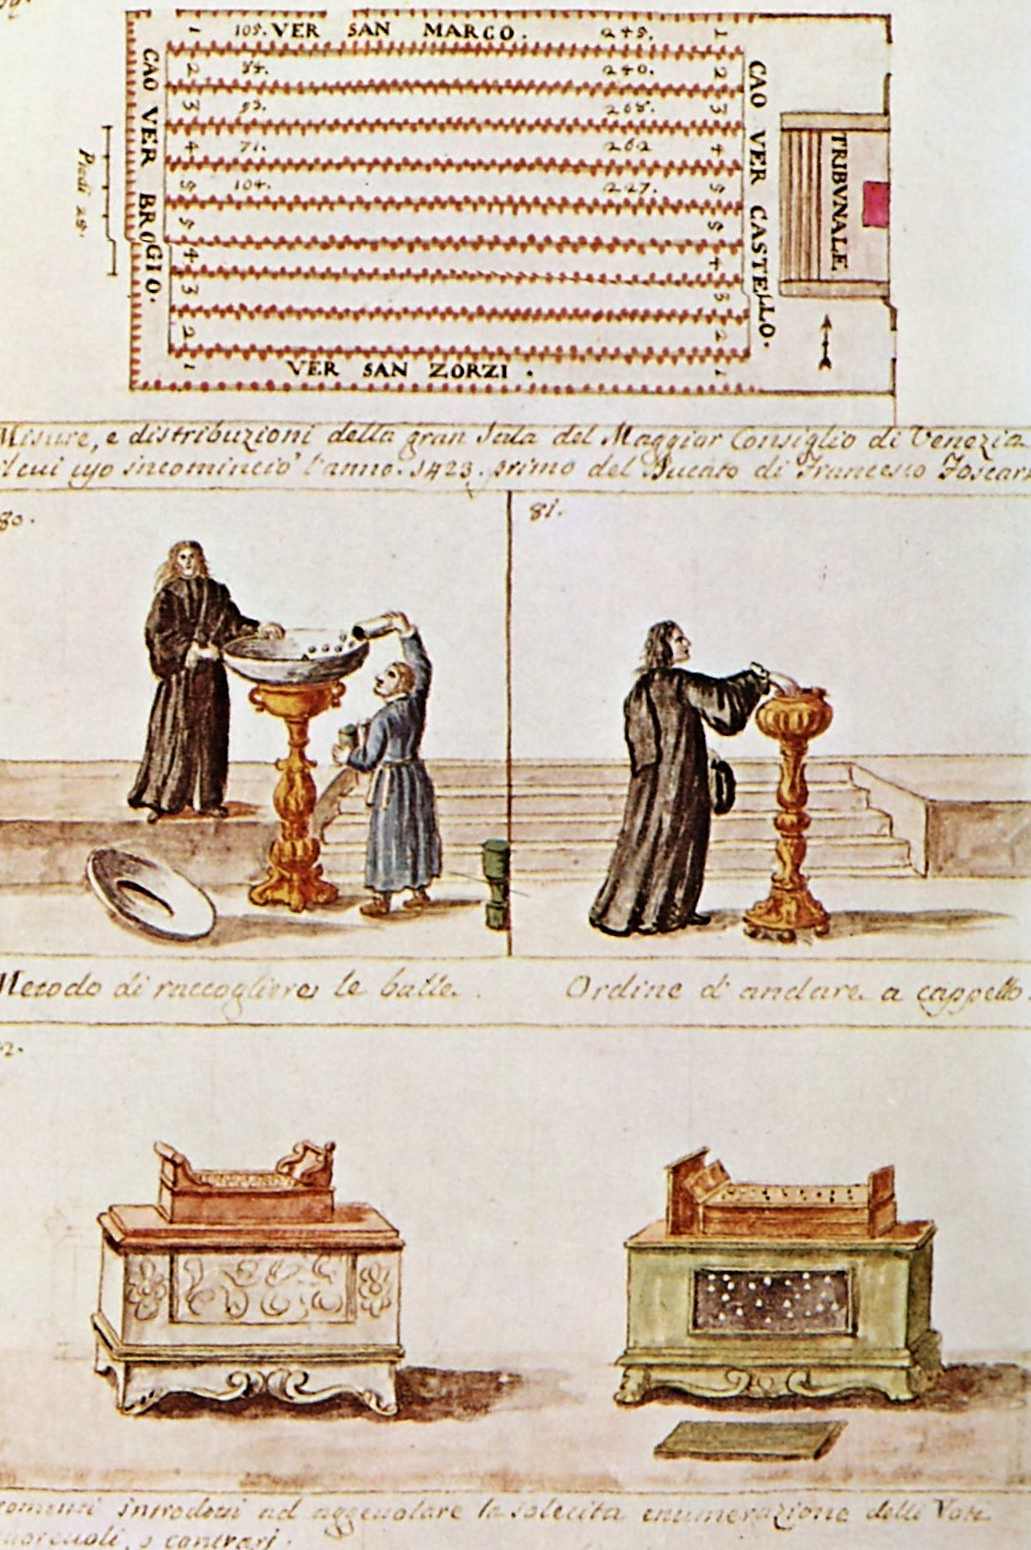 1 109. VER SAN MARCO. 245. 1
2 84. 240. 2
3 93. 268. 3
4 71. 262 4
5 104. 227. 5
5 5
4 4
3 3
2 2
1 VER SAN ZORZI. 1
CAO VER BROGIO.
Piedi 25.
CAO VER CASTELLO.
TRIBVNALE
Misure, e distribuzioni della gran Sala del Maggior Consiglio di Venezia
il cui uso incominciò l'anno. 1423. primo del Ducato di Francesco Foscari
80.
81.
Metodo di raccogliere le balle.
Ordine d'andare a cappello.
2.
introdotti ad aggevolare la sollecita enumerazione delli Voti
o contrarj.